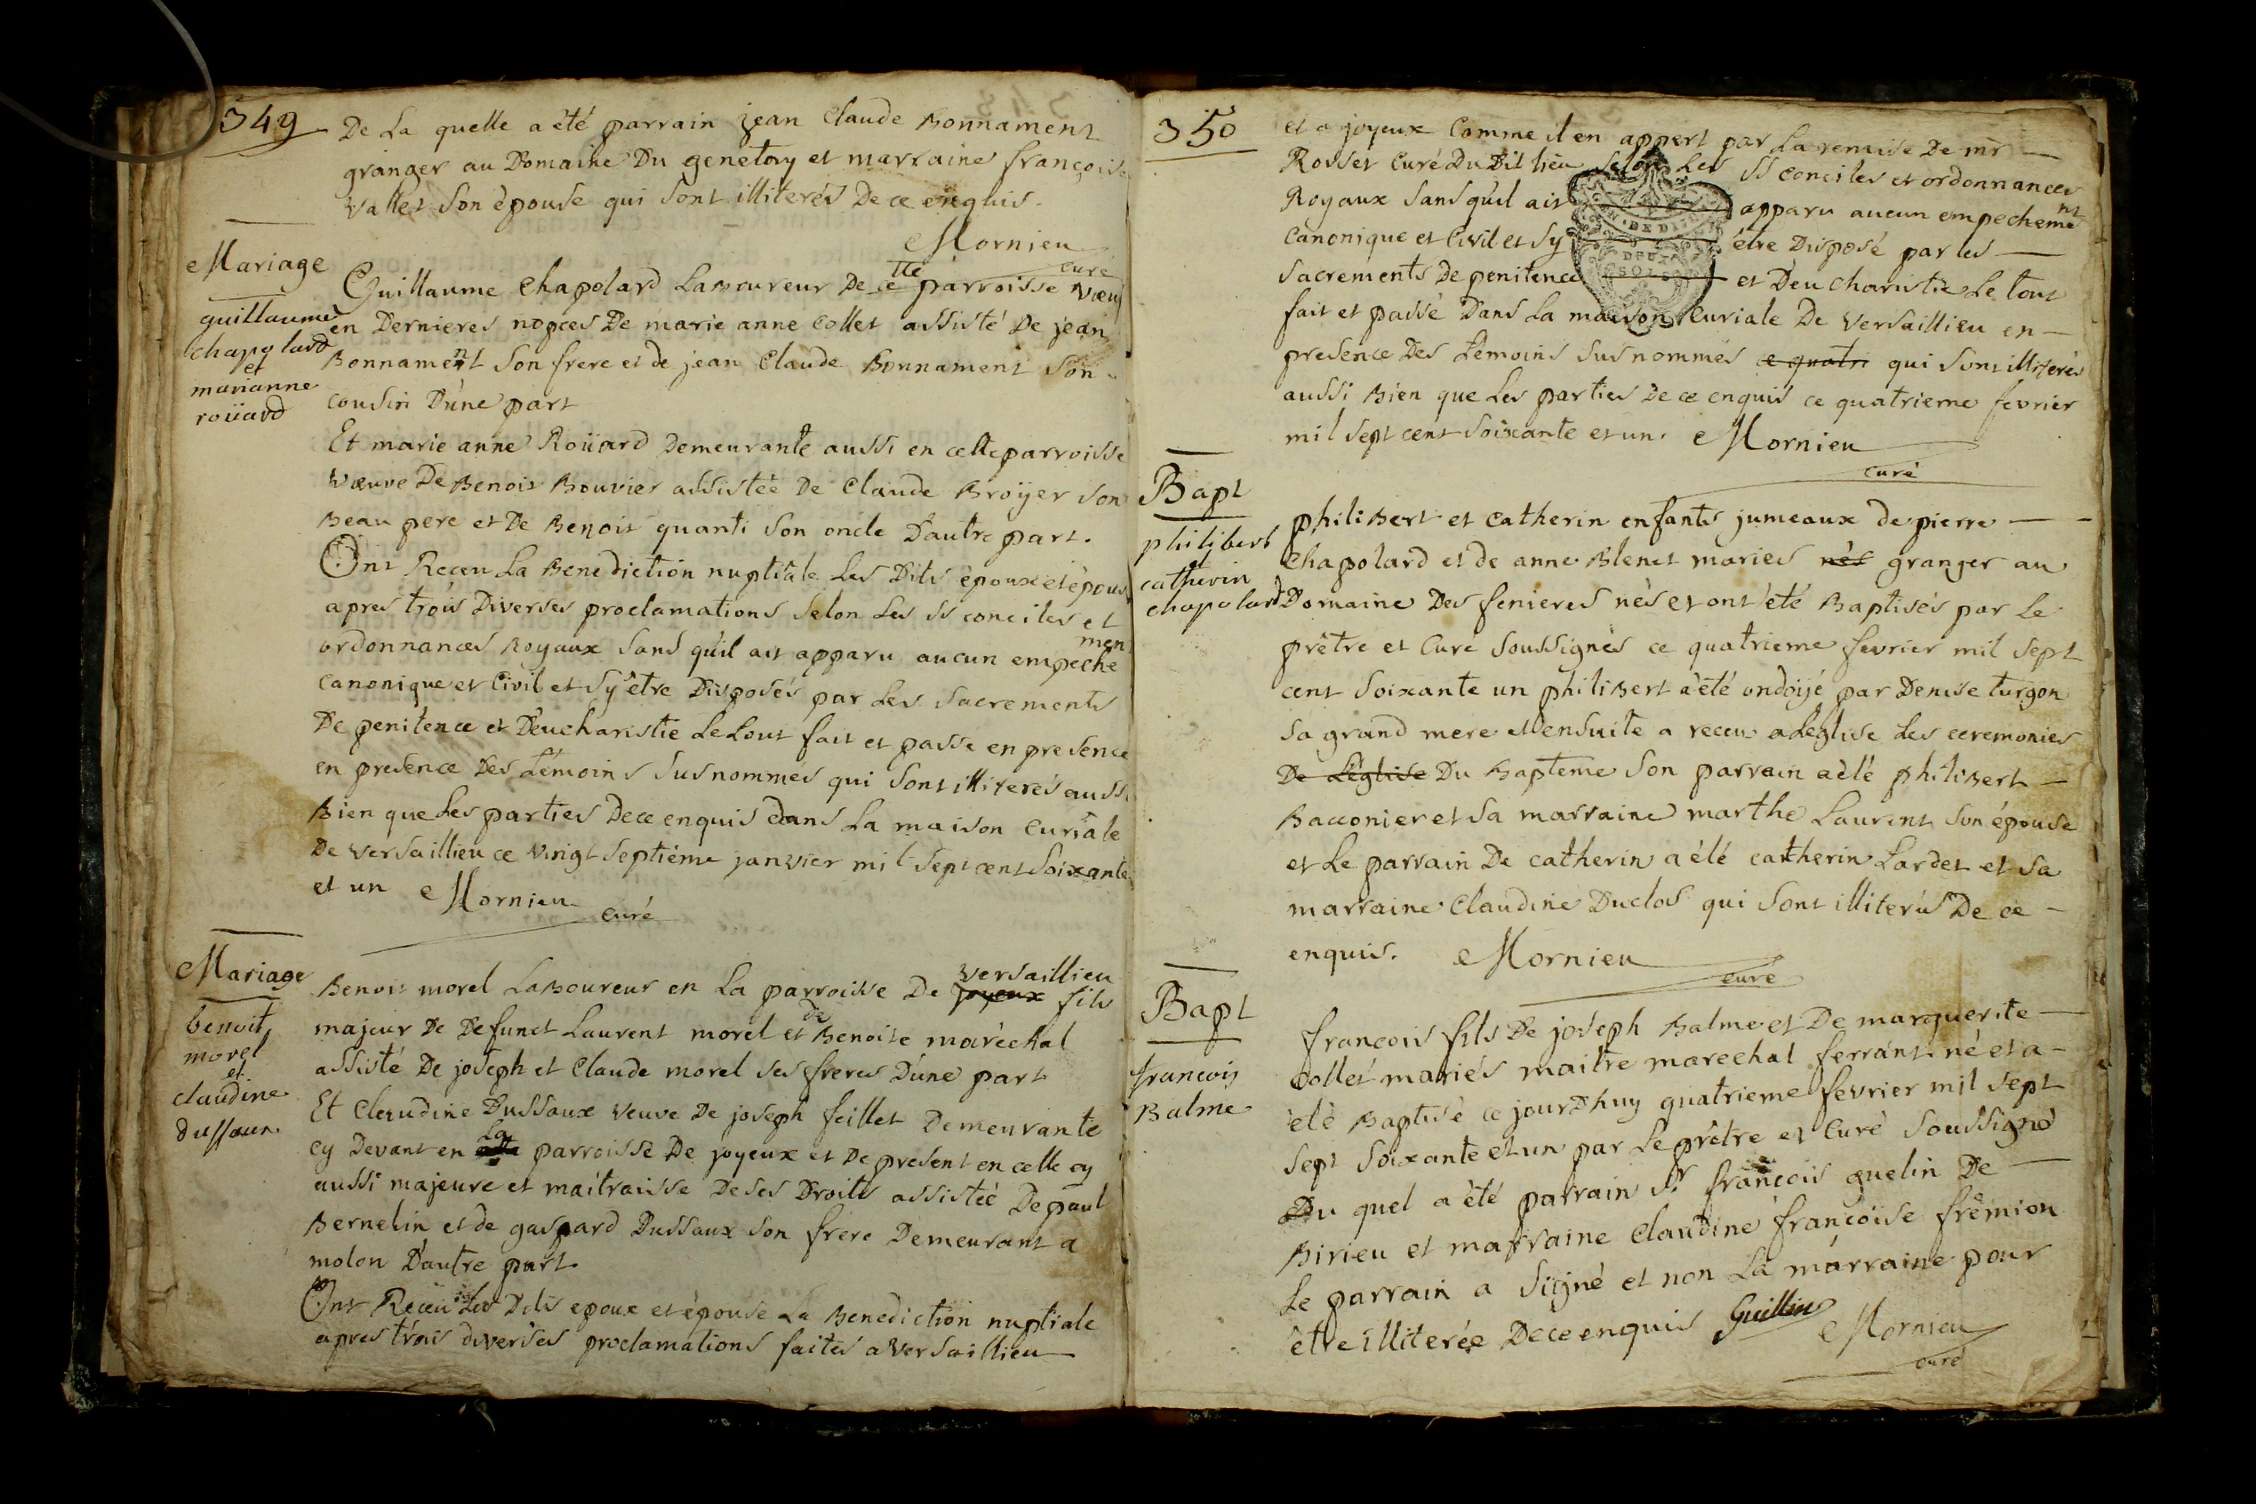 349
De La quelle a été parrain jean Claude Bonnament
granger au Domaine Du genetay et marraine françoise
vallet son épouse qui sont illiterés De ce enquis.
Mornieu
curé
Mariage
guillaume
chapolard
et
marianne
roüard
Guillaume Chapolard Laboureur De cette parroisse vœuf
en Dernieres nopces De marie anne Collet assisté De jean
Bonnament son frere et de jean Claude Bonnament son
cousin D'une part
Et marie anne Roüard Demeurante aussi en cette parroisse
vœuve De Benoit Bouvier assistée De Claude Broÿer son
Beau pere et De Benoit quanti son oncle D'autre part.
Ont Receu La Benediction nuptiale Les Dits époux et épous
apres trois Diverses proclamations selon Les SS conciles et
ordonnances Royaux sans qu'il ait apparu aucun empechemen
Canonique et Civil et sy être Disposés par Les sacrements
De penitence et D'eucharistie Le tout fait et passe en presence
en presence Des témoins susnommes qui sont illiterés aussi
Bien que Les parties De ce enquis dans La maison Curiale
De versaillieu ce vingt septiéme janvier mil sept cent soixante
et un Mornieu
curé
Mariage
benoit
morel
et
claudine
dussaux
Benoit morel Laboureur en La parroisse De joyeux versaillieu fils
majeur De Defunct Laurent morel et de Benoite maréchal
assisté De joseph et Claude morel ses freres D'une part
Et Claudine Dussaux veuve De joseph feillet Demeurante
cy Devant en La parroisse De joyeux et De present en celle cy
aussi majeure et maitraisse De ses Droits assistée De paul
Bernelin et de gaspard Dussaux son frere Demeurant a
molon D'autre part.
Ont Receu Les Dits epoux et épouse La Benediction nuptiale
apres trois diverses proclamations faites a versaillieu
350
et a joyeux Comme il en appert par La remise De mr
Rosset Curé Du Dit lieu selon Les SS conciles et ordonnances
Royaux sans qu'il ait apparu aucun empechement
Canonique et Civil et sy être Disposé par les
sacrements De penitence et D'eucharistie Le tout
fait et passé Dans La maison Curiale De versaillieu en
presence Des témoins susnommés e quatri qui sont illiterés
aussi Bien que Les parties De ce enquis ce quatrieme fevrier
mil sept cent soixante et un. Mornieu
curé
DE DI
DEUX
SOLS
Bapt
philibert
catherin
chapolard
philibert et catherin enfants jumeaux de pierre
Chapolard et de anne Blenet mariés nés granger au
Domaine Des fenieres nés et ont été Baptisés par Le
prêtre et Curé soussignés ce quatrieme fevrier mil sept
cent soixante un philibert a été ondoijé par Denise turgon
sa grand mere et ensuite a receu a L'église Les ceremonies
De L'église Du Bapteme son parrain a été philibert
Bacconier et sa marraine marthe Laurent son épouse
et Le parrain De catherin a été catherin Lardet et sa
marraine Claudine Duclos qui sont illiterés De ce
enquis. Mornieu
curé
Bapt
francois
Balme
francois fils De joseph Balme et De marguerite
Collet mariés maitre marechal ferrant né et a
été Baptisé ce jourd'huy quatrieme fevrier mil sept
sept soixante et un par Le prêtre et Curé soussigné
Du quel a été parrain Sr françois guelin De
Birieu et marraine Claudine françoise frémion
Le parrain a signé et non La marraine pour
être illiterée De ce enquis Guillin
Mornieu
curé